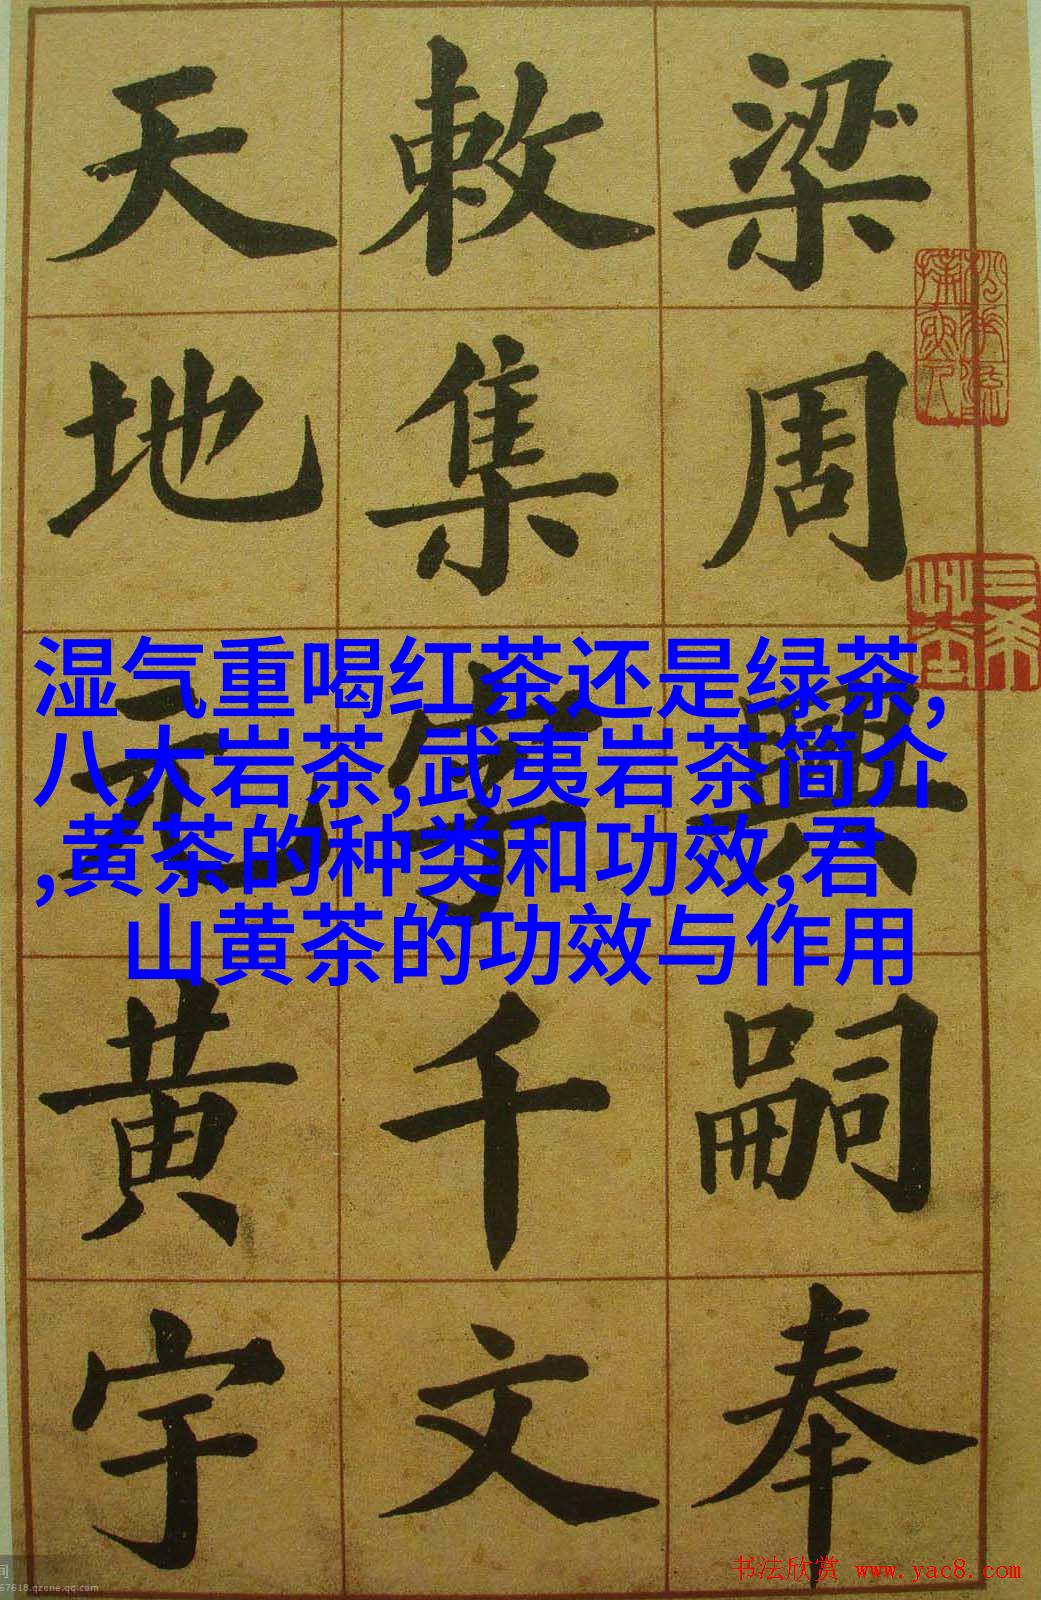 梁周興嗣奉
敕集千文
天地元黄宇
湿气重喝红茶还是绿茶,
八大岩茶,武夷岩茶简介
,黄茶的种类和功效,君
山黄茶的功效与作用
书法欣赏 www.yac8.com
间
67618.qzone.qq.com